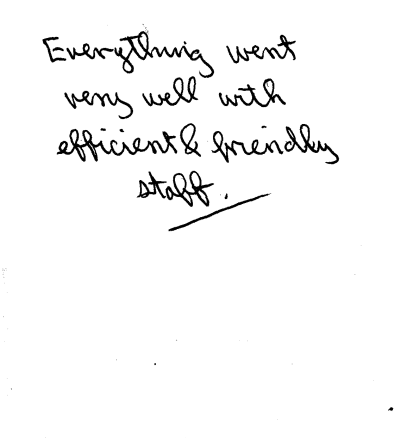 Everything went
very well with
efficient & friendly
staff.